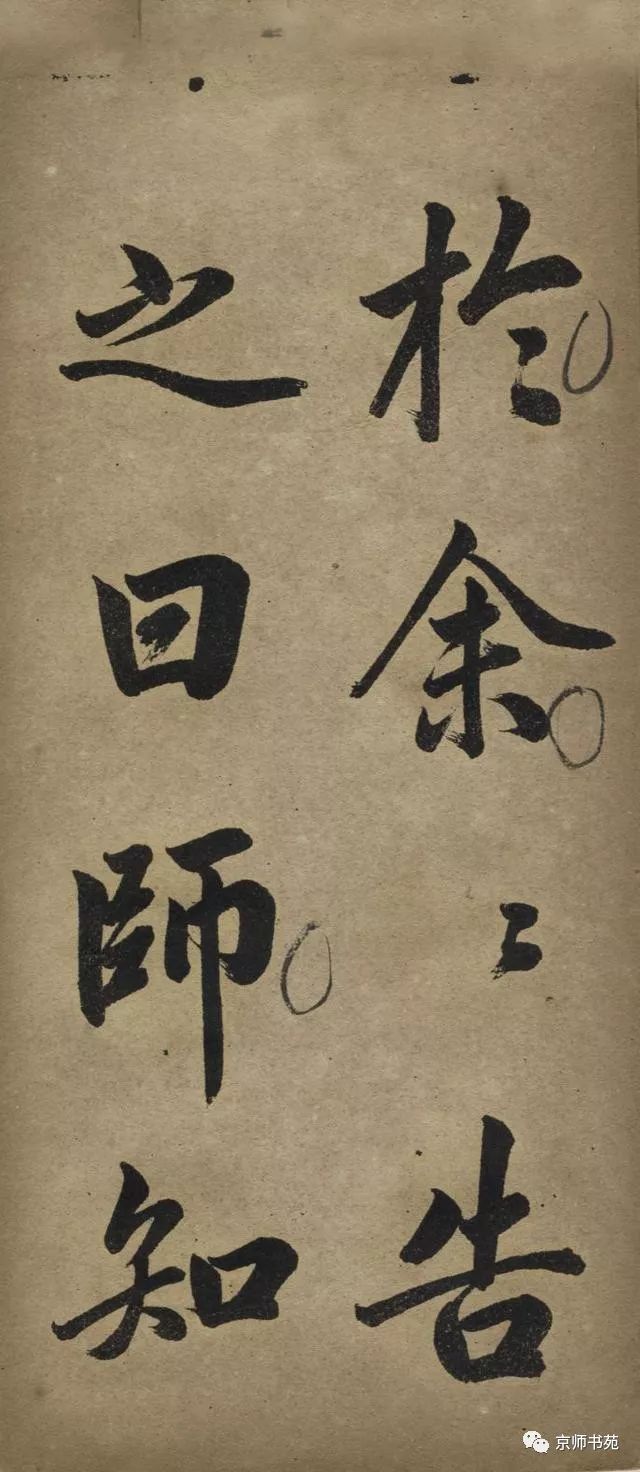 於余〻告
之曰師知
京师书苑